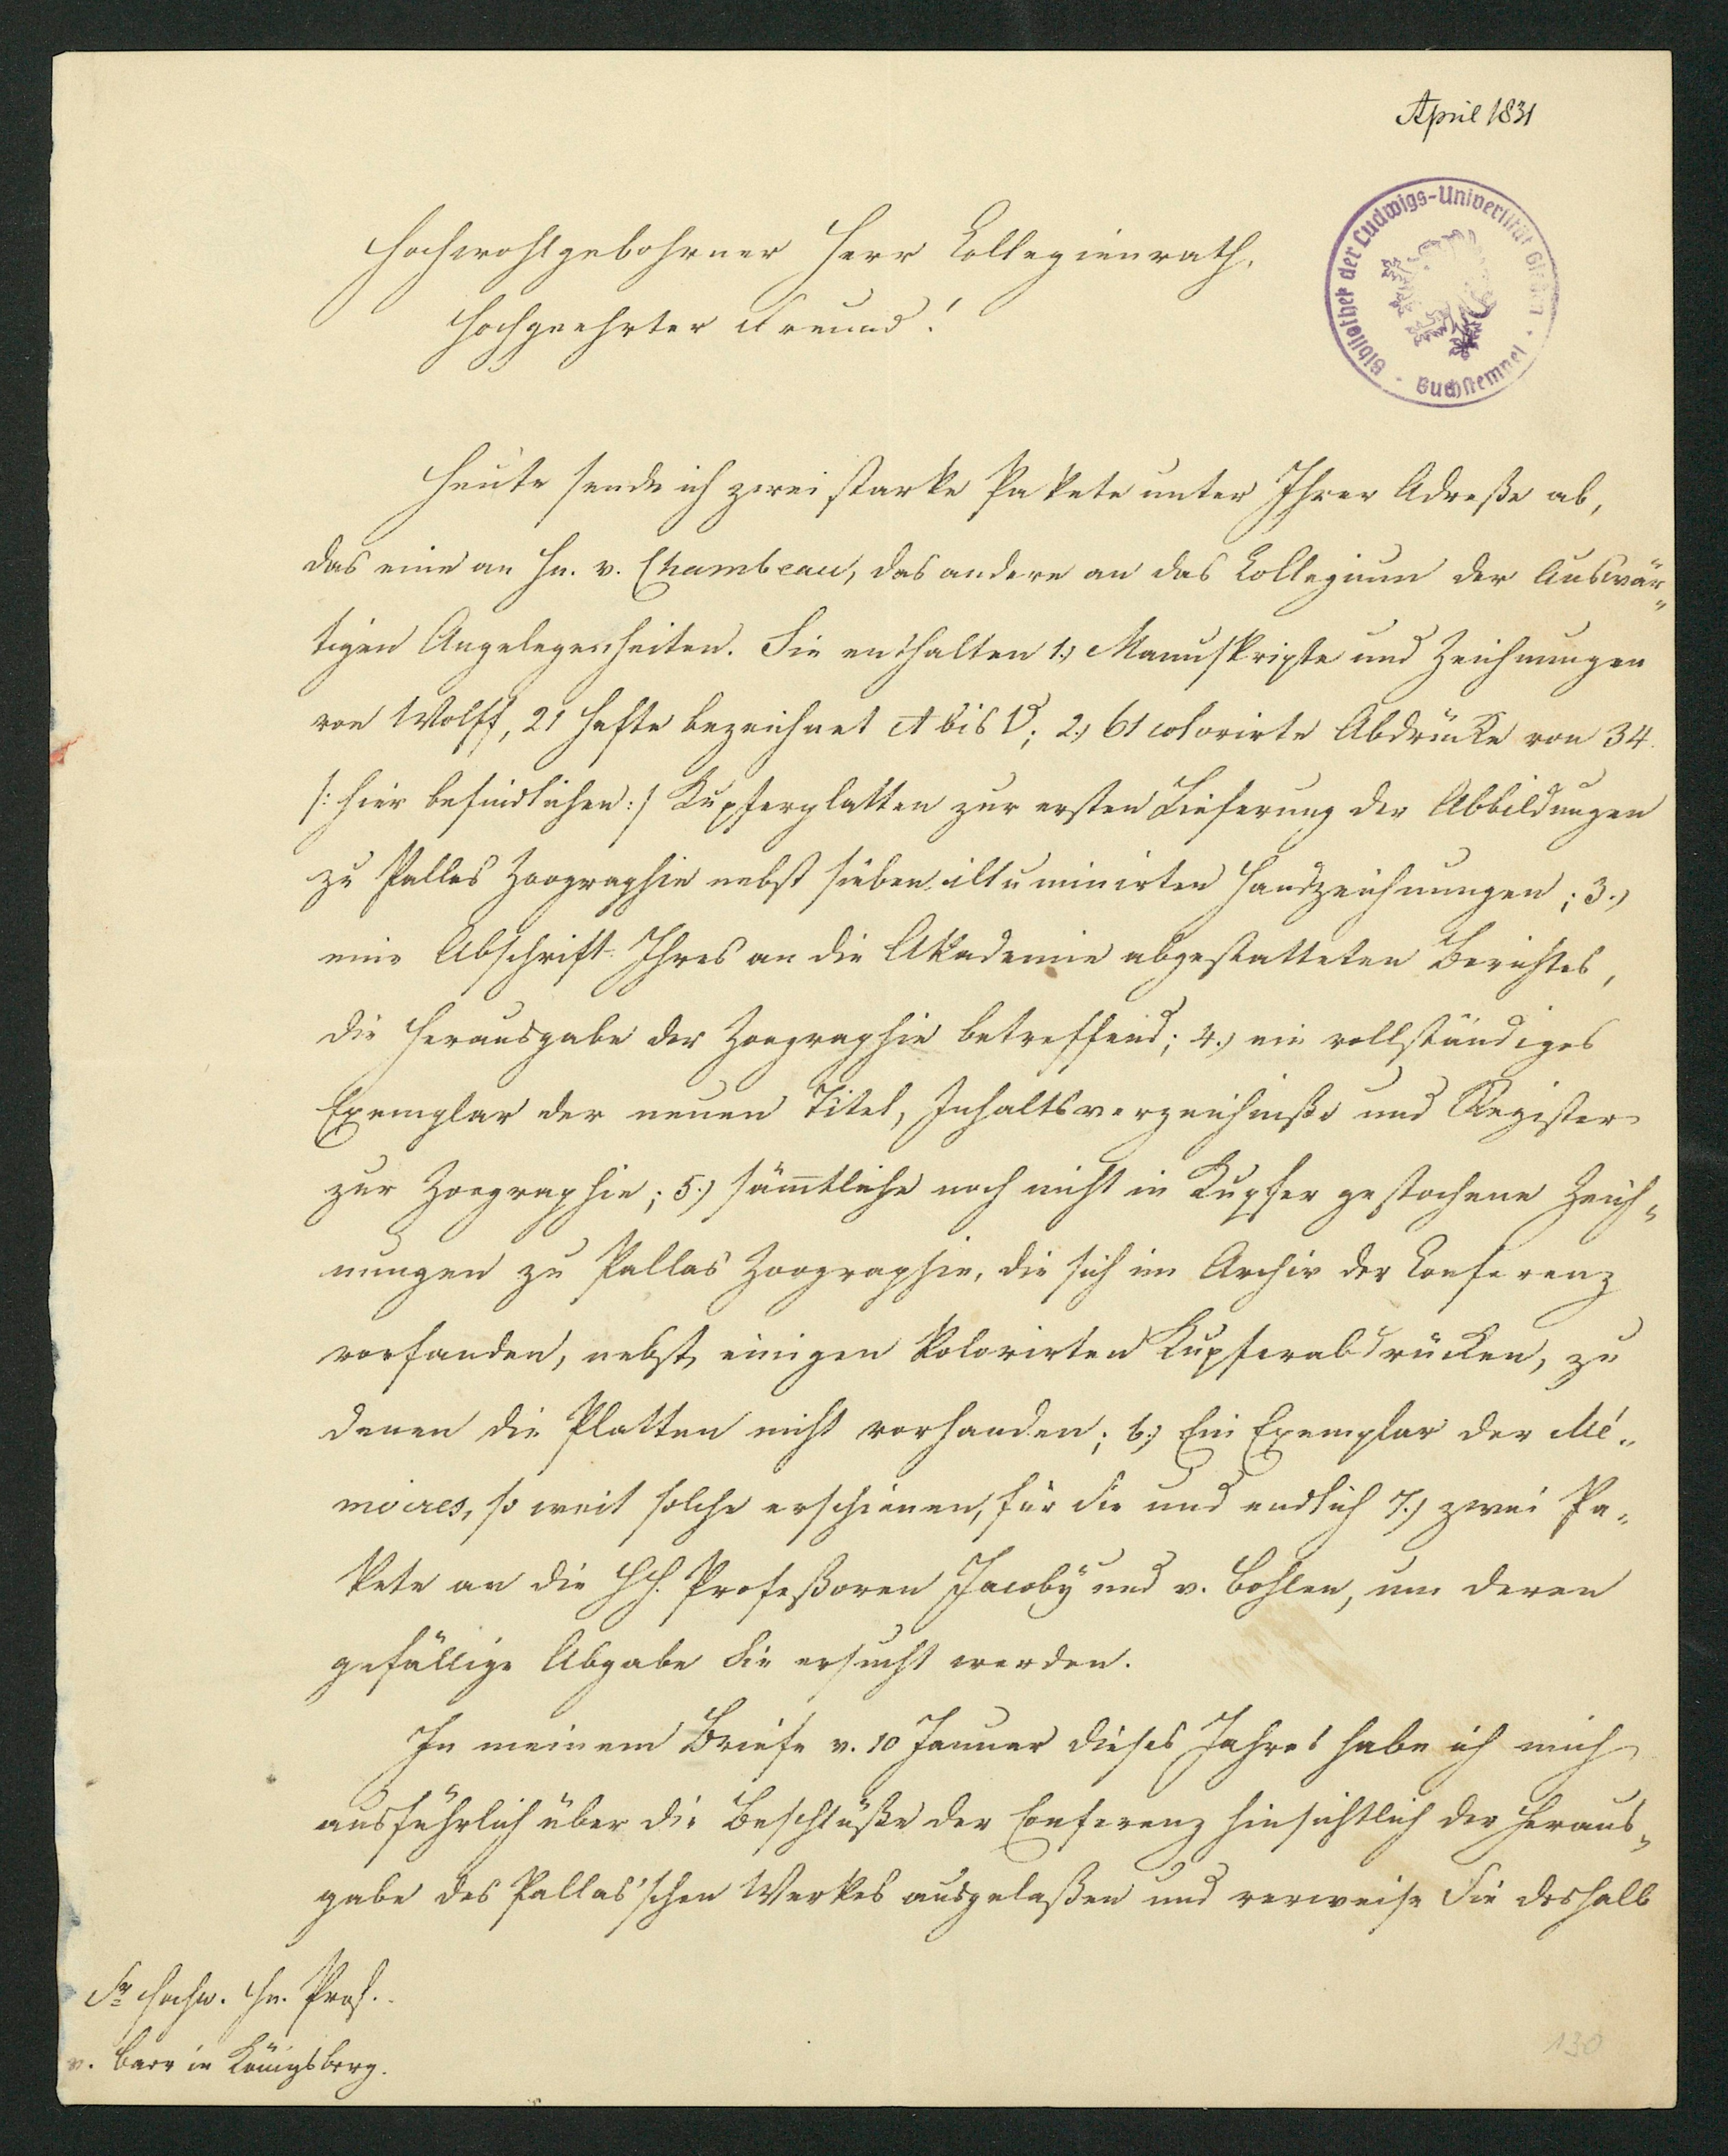 April 1831
Bibliothek der Ludwigs-Universität Gießen · Buchstempel ·
Hochwohlgebohrner Herr Collegienrath,
Hochgeehrter Freund!
Heute sende ich zwei starke Pakete unter Ihrer Adreße ab,
das eine an Hn. v. Chambeau, das andere an das Collegium der Auswär„
tigen Angelegenheiten. Sie enthalten 1.) Manuskripte und Zeichnungen
von Wolff, 21 Hefte bezeichnet A bis V; 2.) 61 colorirte Abdrücke von 34.
/: hier befindlichen :/ Kupferplatten zur ersten Lieferung der Abbildungen
zu Pallas Zoographie nebst sieben illuminirten Handzeichnungen; 3.)
eine Abschrift Ihres an die Akademie abgestatteten Berichtes,
die Herausgabe der Zoographie betreffend; 4.) ein vollständiges
Exemplar der neuen Titel, Inhaltsverzeichniße und Register
zur Zoographie; 5.) sämtliche noch nicht in Kupfer gestochene Zeich„
nungen zu Pallas Zoographie, die sich im Archiv der Conferenz
vorfanden, nebst einigen kolorirten Kupferabdrücken, zu
denen die Platten nicht vorhanden; 6.) Ein Exemplar der Mé„
moires, so weit solche erschienen, für Sie und endlich 7.) zwei Pa„
kete an die HH. Profeßoren Jacoby und v. Bohlen, um deren
gefällige Abgabe Sie ersucht werden.
In meinem Briefe v. 10 Januar dieses Jahres habe ich mich
ausführlich über die Beschlüße der Conferenz hinsichtlich der Heraus„
gabe des Pallas'schen Werkes ausgelaßen und verweise Sie deshalb
Sr Hochw. Hn. Prof.
v. Baer in Königsberg.
130